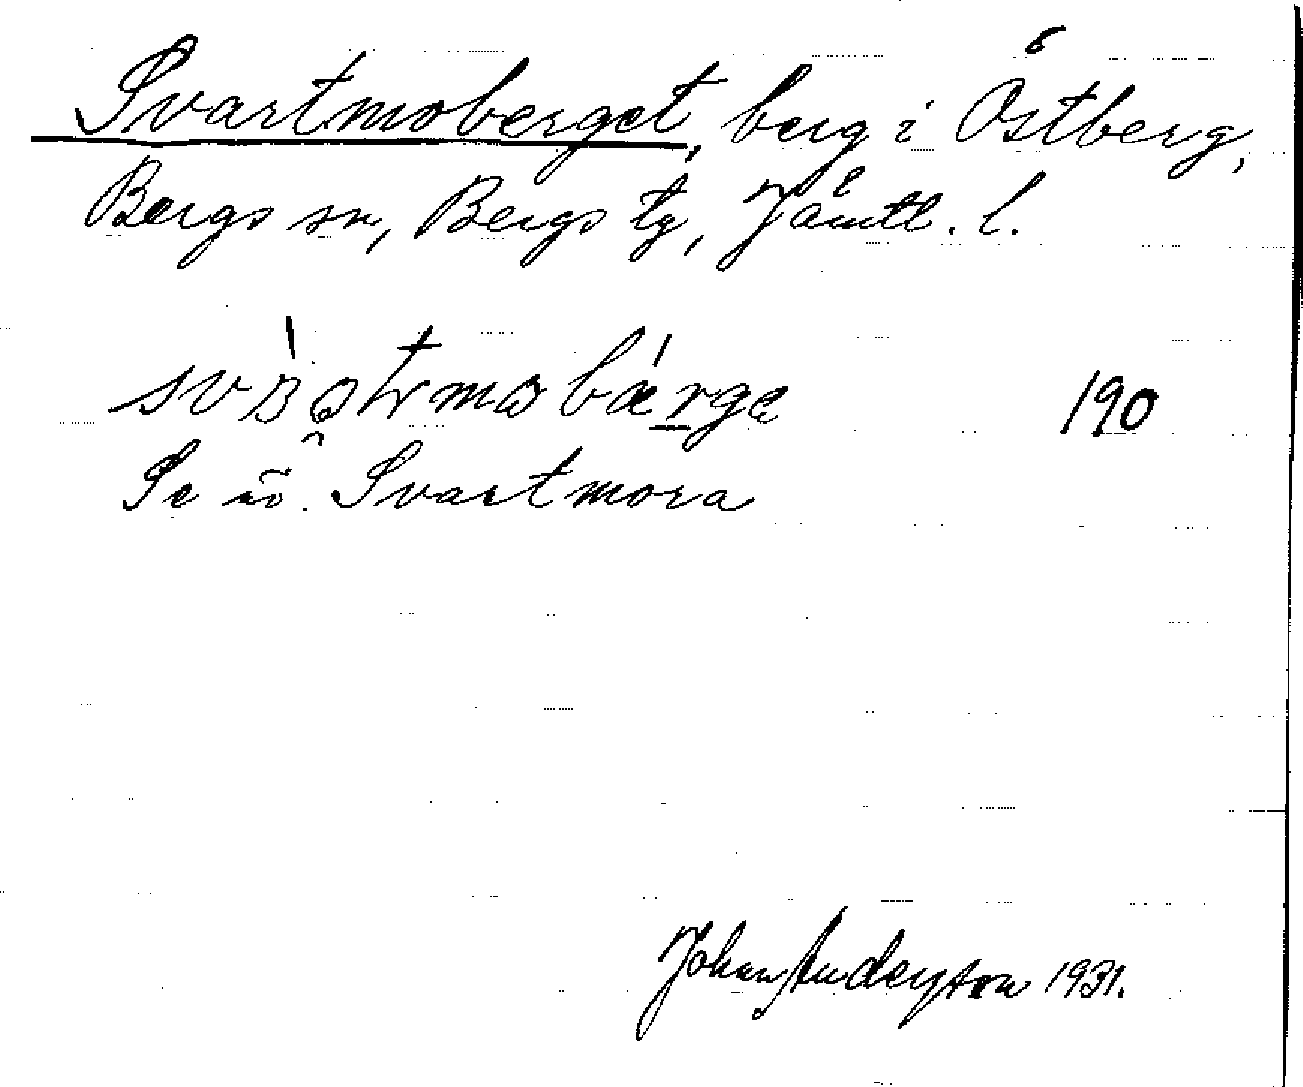 Svartmoberget, berg i Östberg,
Bergs sn, Bergs tg, Jämtl. l.
190
Se uo. Svartmora
Johan Anderson 1931.